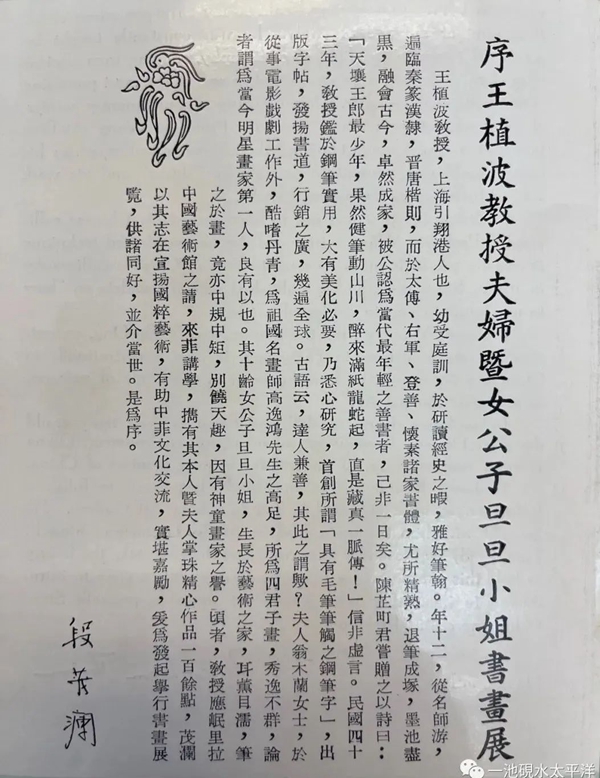 序王植波教授夫婦暨女公子旦旦小姐書畫展
王植波教授,上海引翔港人也,幼受庭訓,於研讀經史之暇,雅好筆翰。年十二,從名師游,
遍臨秦篆漢隸,晉唐楷則,而於太傅、右軍、登善、懷素諸家書體,尤所精熟,退筆成塚,墨池盡
黑,融會古今,卓然成家,被公認爲當代最年輕之善書者,已非一日矣。陳芷町君嘗贈之以詩曰:
「天壤王郎最少年,果然健筆動山川,醉來滿紙龍蛇起,直是藏真一脈傳!」信非虛言。民國四十
三年,教授鑑於鋼筆實用,大有美化必要,乃悉心研究,首創所謂「具有毛筆筆觸之鋼筆字」,出
版字帖,發揚書道,行銷之廣,幾遍全球。古語云,達人兼善,其此之謂歟?夫人翁木蘭女士,於
從事電影戲劇工作外,酷嗜丹青,爲祖國名畫師高逸鴻先生之高足,所爲四君子畫,秀逸不群,論
者謂爲當今明星畫家第一人,良有以也。其十齡女公子旦旦小姐,生長於藝術之家,耳薰目濡,筆
之於畫,竟亦中規中矩,別饒天趣,因有神童畫家之譽。頃者,教授應岷里拉
中國藝術館之請,來菲講學,携有其本人暨夫人掌珠精心作品一百餘點,茂瀾
以其志在宣揚國粹藝術,有助中菲文化交流,實堪嘉勵,爰爲發起舉行書畫展
覽,供諸同好,並介當世。是爲序。
段茂瀾
一池硯水太平洋